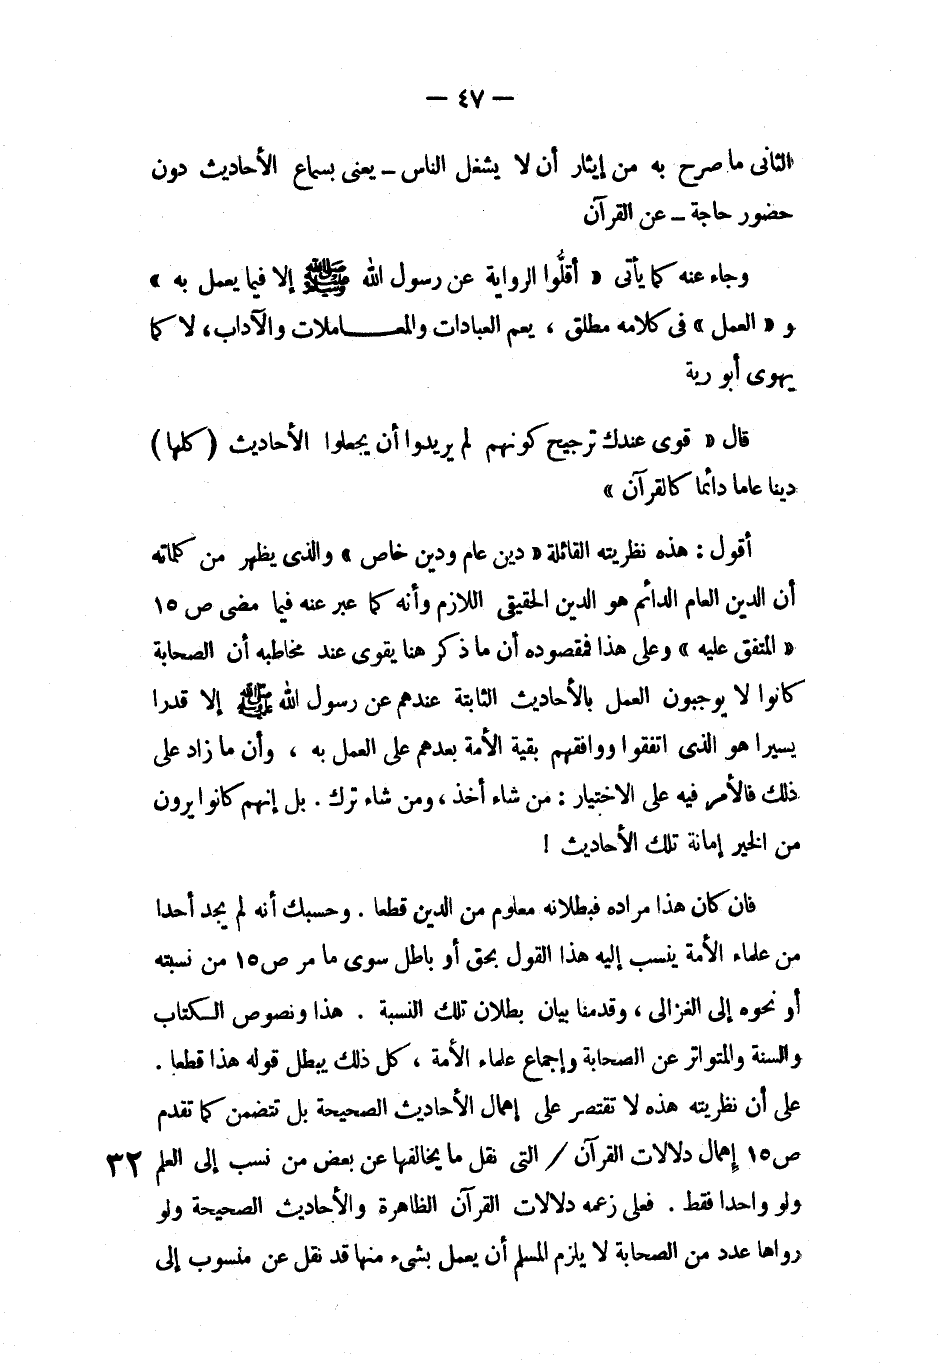 — ٤٧ —
الثانى ما صرح به من إيثار أن لا يشغل الناس ـ يعنى بسماع الأحاديث دون
حضور حاجة ـ عن القرآن
وجاء عنه كما يأتى « أقلُّوا الرواية عن رسول الله ﷺ إلا فيما يعمل به »
و « العمل » فى كلامه مطلق ، يعم العبادات والمعـــاملات والآداب، لا كما
يهوى أبو رية
قال « قوى عندك ترجيح كونهم لم يريدوا أن يجعلوا الأحاديث ( كلها )
دينا عاما دائما كالقرآن »
أقول : هذه نظريته القائلة « دين عام ودين خاص » والذى يظهر من كلماته
أن الدين العام الدائم هو الدين الحقيقى اللازم وأنه كما عبر عنه فيما مضى ص ١٥
« المتفق عليه » وعلى هذا فمقصوده أن ما ذكر هنا يقوى عند مخاطبه أن الصحابة
كانوا لا يوجبون العمل بالأحاديث الثابتة عندهم عن رسول الله ﷺ إلا قدرا
يسيرا هو الذى اتفقوا ووافقهم بقية الأمة بعدهم على العمل به ، وأن ما زاد على
ذلك فالأمر فيه على الاختيار : من شاء أخذ ، ومن شاء ترك . بل إنهم كانوا يرون
من الخير إماتة تلك الأحاديث !
فان كان هذا مراده فبطلانه معلوم من الدين قطعا . وحسبك أنه لم يجد أحدا
من علماء الأمة ينسب إليه هذا القول بحق أو باطل سوى ما مر ص١٥ من نسبته
أو نحوه إلى الغزالى ، وقدمنا بيان بطلان تلك النسبة . هذا ونصوص الكتاب
والسنة والمتواتر عن الصحابة وإجماع علماء الأمة ، كل ذلك يبطل قوله هذا قطعا .
على أن نظريته هذه لا تقتصر على إهمال الأحاديث الصحيحة بل تتضمن كما تقدم
ص١٥ إهمال دلالات القرآن / التى نقل ما يخالفها عن بعض من نسب إلى العلم ٣٢
ولو واحدا فقط . فعلى زعمه دلالات القرآن الظاهرة والأحاديث الصحيحة ولو
رواها عدد من الصحابة لا يلزم المسلم أن يعمل بشىء منها قد نقل عن منسوب إلى